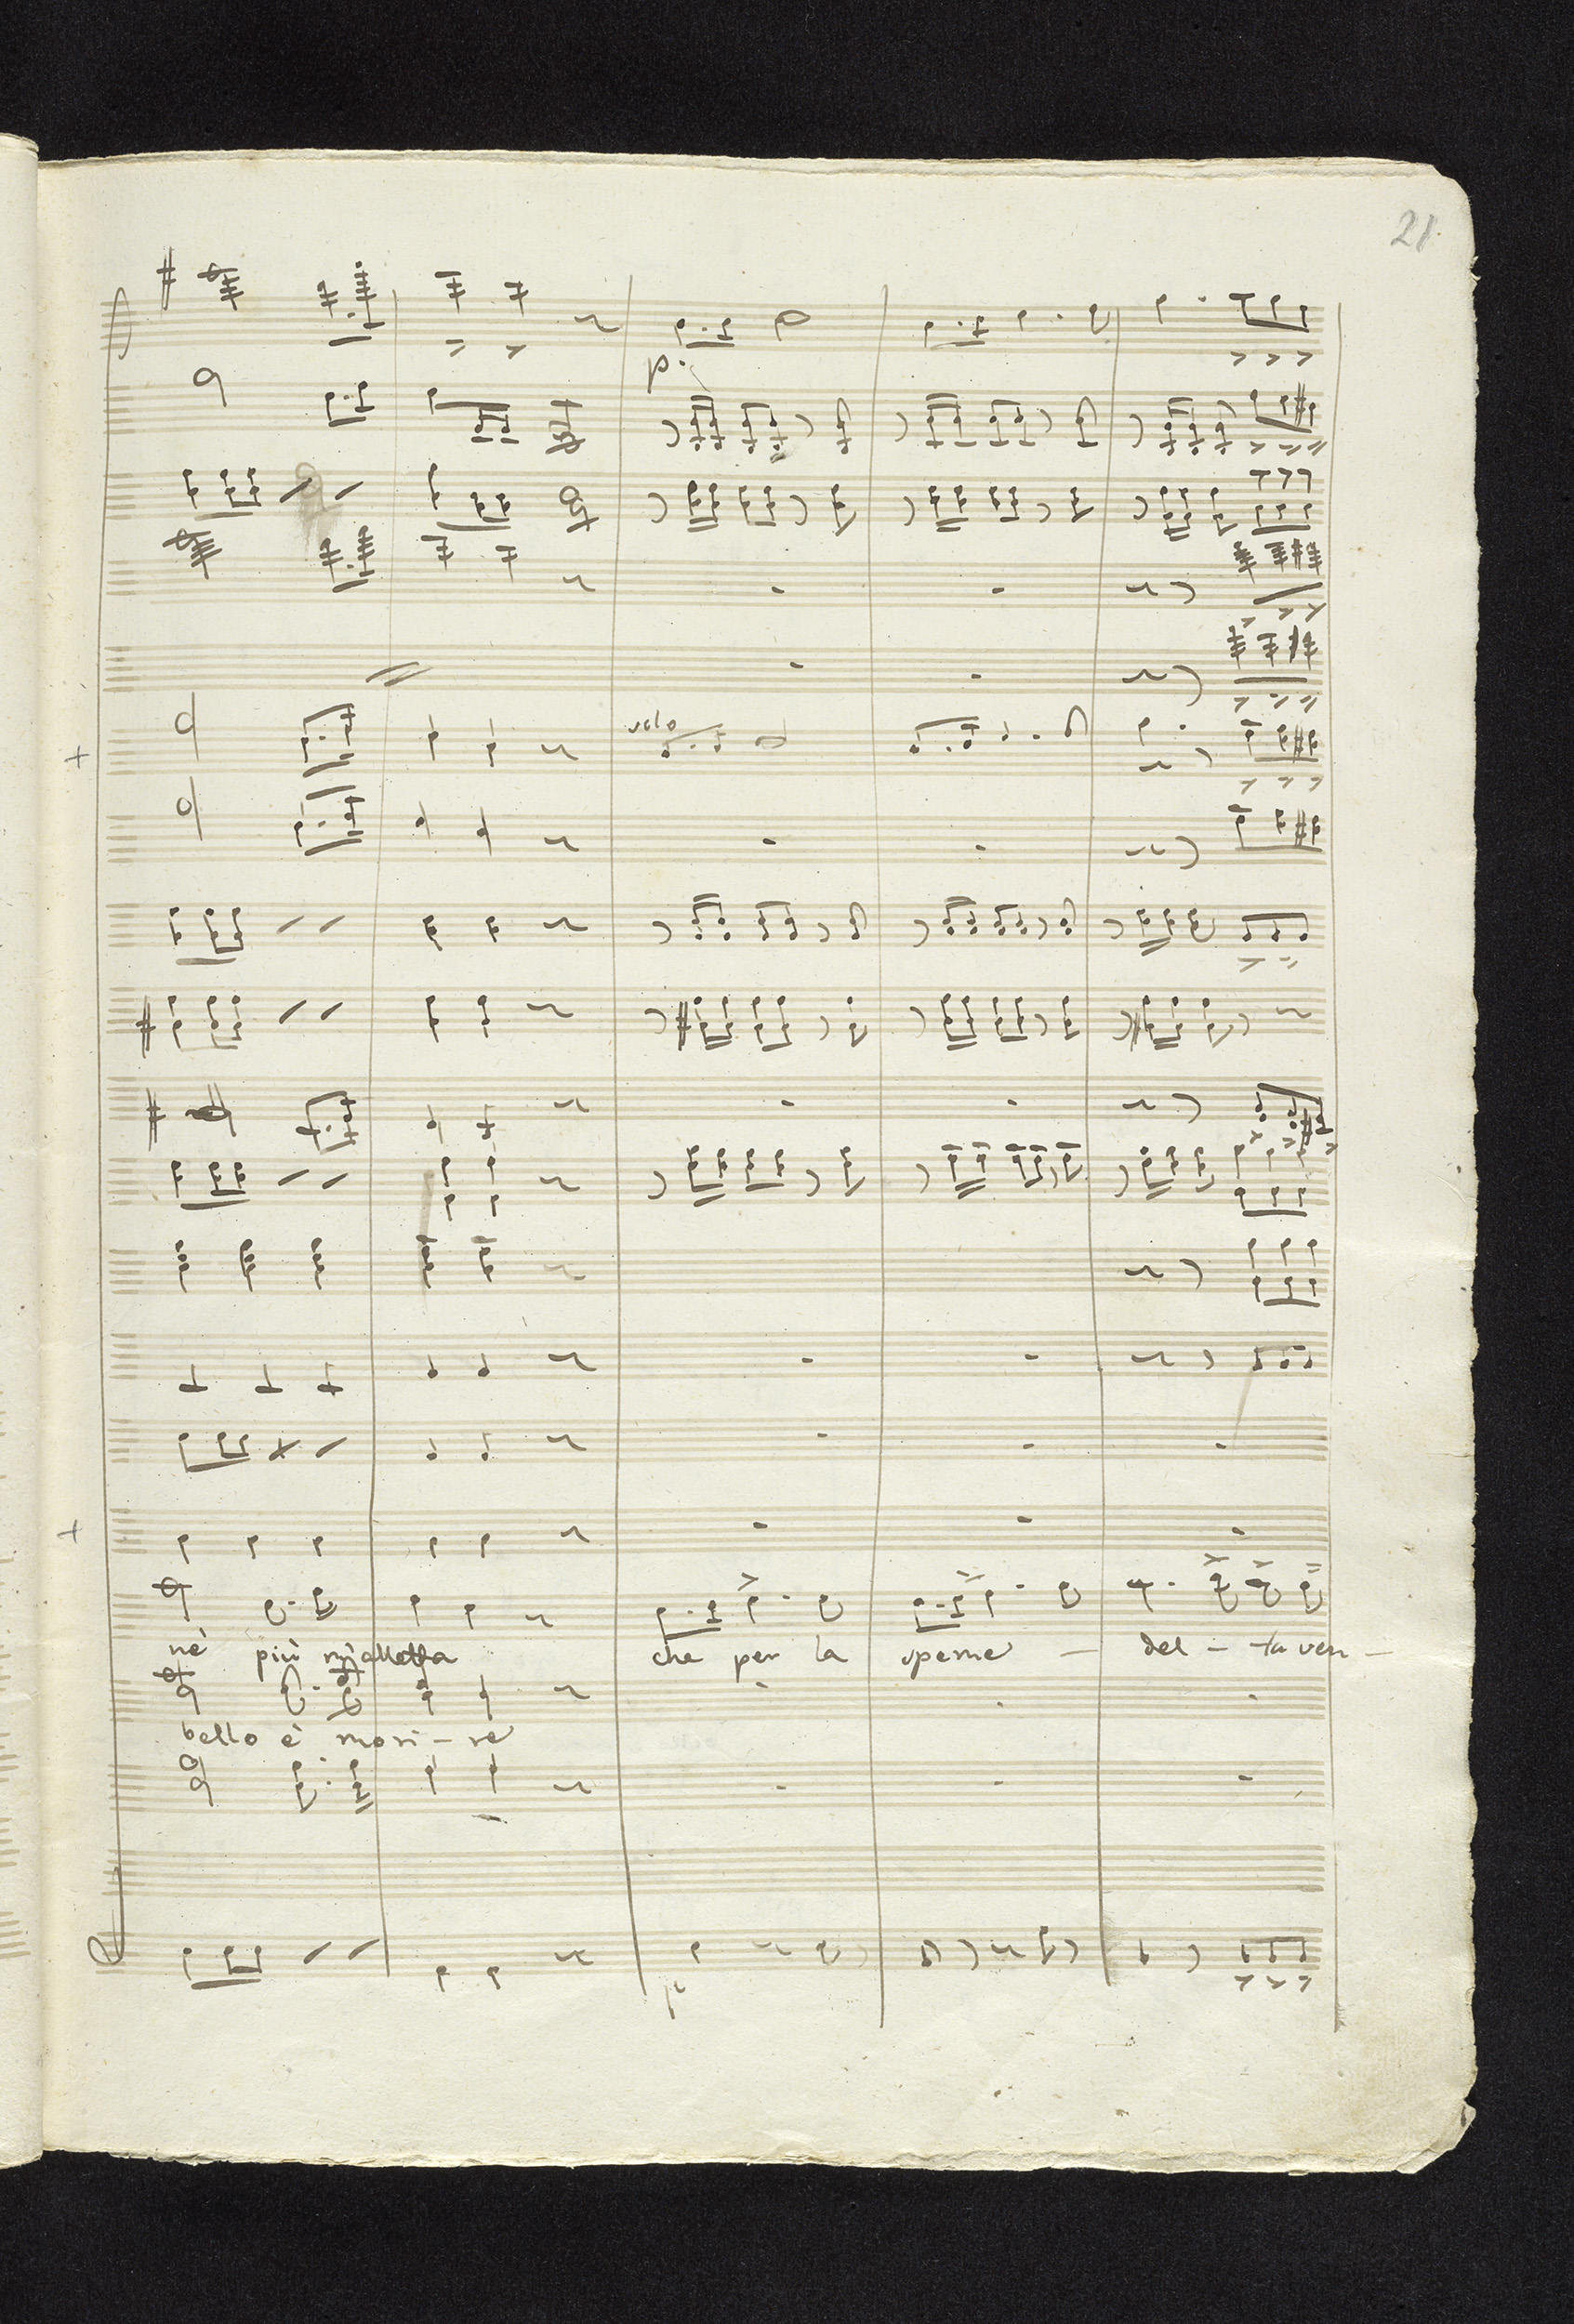 21
p.
solo
né più m'alletta che per la speme - del - la ven -
bello è mori - re
p